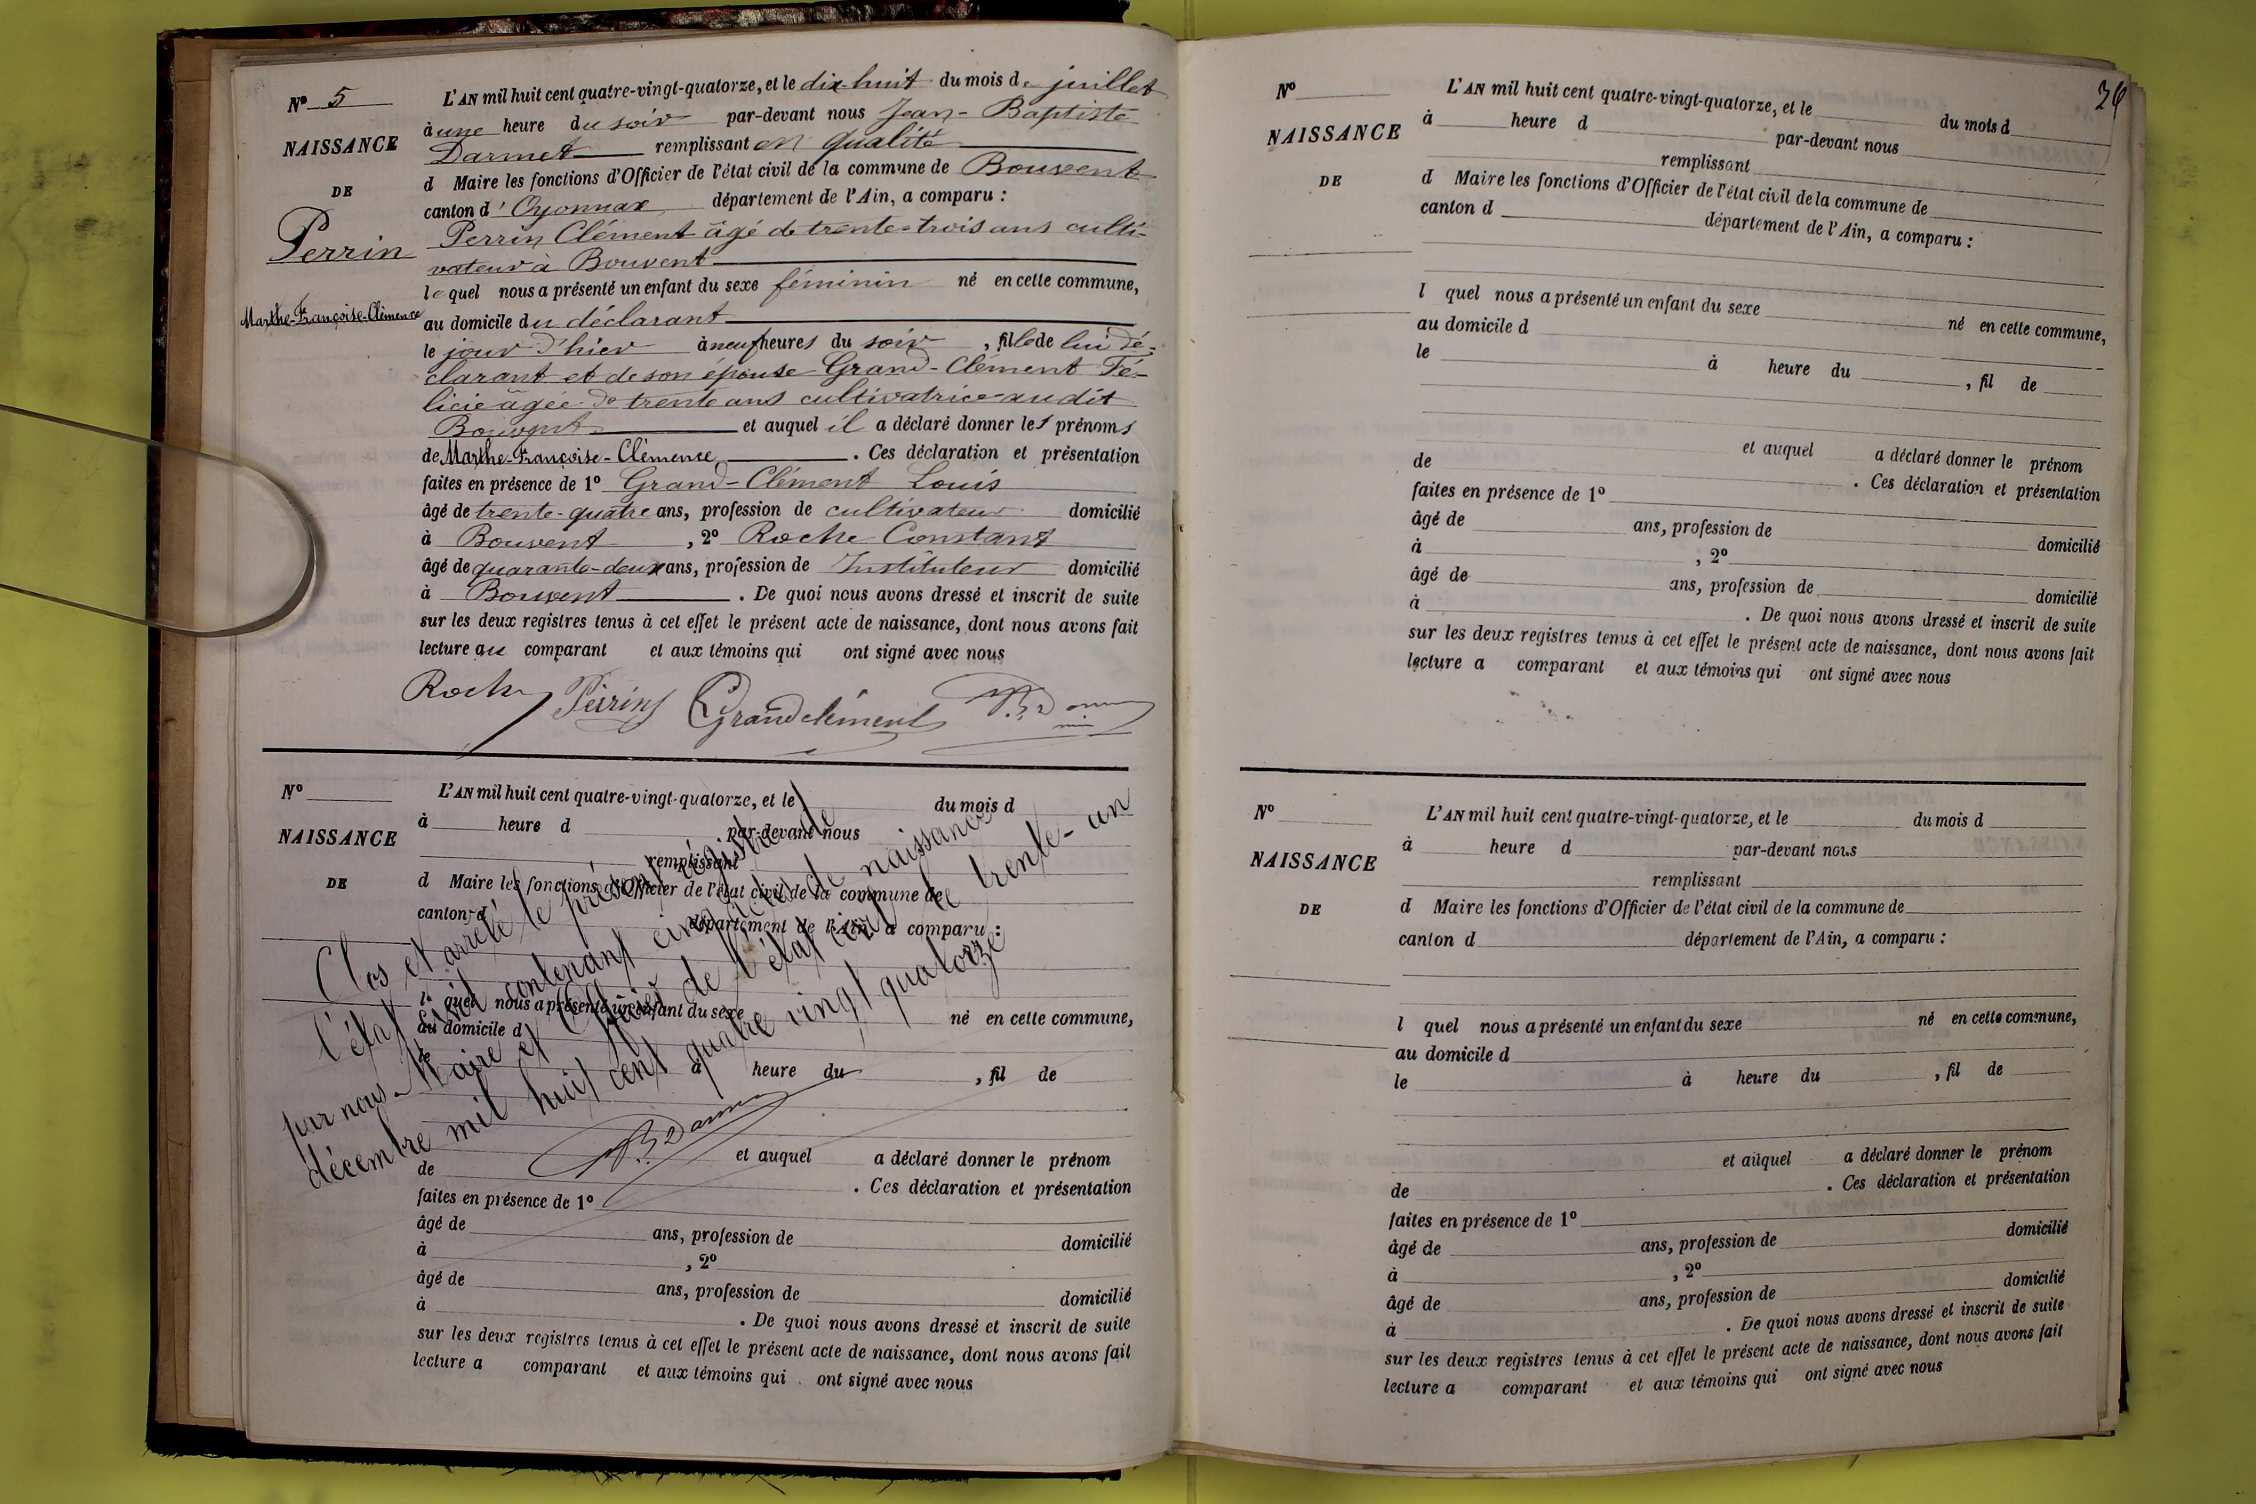 Nº 5
NAISSANCE
DE
Perrin
Marthe-Françoise-Clémence
L'AN mil huit cent quatre-vingt-quatorze, et le dix-huit du mois de juillet
à une heure du soir par-devant nous Jean-Baptiste
Darmet remplissant en qualité
d Maire les fonctions d'Officier de l'état civil de la commune de Bouvent
canton d'Oyonnax département de l'Ain, a comparu :
Perrin Clément âgé de trente-trois ans culti-
vateur à Bouvent
lequel nous a présenté un enfant du sexe féminin né en cette commune,
au domicile du déclarant
le jour d'hier à neuf heures du soir, fille de lui dé-
clarant et de son épouse Grand-Clément Fé-
licie âgée de trente ans cultivatrice audit
Bouvent et auquel il a déclaré donner les prénoms
de Marthe-Françoise-Clémence. Ces déclaration et présentation
faites en présence de 1º Grand-Clément Louis
âgé de trente-quatre ans, profession de cultivateur domicilié
à Bouvent, 2º Roche Constant
âgé de quarante-deux ans, profession de Instituteur domicilié
à Bouvent. De quoi nous avons dressé et inscrit de suite
sur les deux registres tenus à cet effet le présent acte de naissance, dont nous avons fait
lecture au comparant et aux témoins qui ont signé avec nous
Roche Perrin Grandclément
Nº
NAISSANCE
DE
L'AN mil huit cent quatre-vingt-quatorze, et le du mois d
à heure d par-devant nous
remplissant
d Maire les fonctions d'Officier de l'état civil de la commune de
canton d département de l'Ain, a comparu :
l quel nous a présenté un enfant du sexe né en cette commune,
au domicile d
le à heure du , fil de
et auquel a déclaré donner le prénom
de . Ces déclaration et présentation
faites en présence de 1º
âgé de ans, profession de domicilié
à , 2º
âgé de ans, profession de domicilié
à . De quoi nous avons dressé et inscrit de suite
sur les deux registres tenus à cet effet le présent acte de naissance, dont nous avons fait
lecture a comparant et aux témoins qui ont signé avec nous
Clos et arrêté le présent régistre de
l'état civil contenant cinq actes de naissance
par nous Maire et Officier de l'état civil le trente-un
décembre mil huit cent quatre vingt quatorze
26
Nº
NAISSANCE
DE
L'AN mil huit cent quatre-vingt-quatorze, et le du mois d
à heure d par-devant nous
remplissant
d Maire les fonctions d'Officier de l'état civil de la commune de
canton d département de l'Ain, a comparu :
l quel nous a présenté un enfant du sexe né en cette commune,
au domicile d
le à heure du , fil de
et auquel a déclaré donner le prénom
de . Ces déclaration et présentation
faites en présence de 1º
âgé de ans, profession de domicilié
à , 2º
âgé de ans, profession de domicilié
à . De quoi nous avons dressé et inscrit de suite
sur les deux registres tenus à cet effet le présent acte de naissance, dont nous avons fait
lecture a comparant et aux témoins qui ont signé avec nous
Nº
NAISSANCE
DE
L'AN mil huit cent quatre-vingt-quatorze, et le du mois d
à heure d par-devant nous
remplissant
d Maire les fonctions d'Officier de l'état civil de la commune de
canton d département de l'Ain, a comparu :
l quel nous a présenté un enfant du sexe né en cette commune,
au domicile d
le à heure du , fil de
et auquel a déclaré donner le prénom
de . Ces déclaration et présentation
faites en présence de 1º
âgé de ans, profession de domicilié
à , 2º
âgé de ans, profession de domicilié
à . De quoi nous avons dressé et inscrit de suite
sur les deux registres tenus à cet effet le présent acte de naissance, dont nous avons fait
lecture a comparant et aux témoins qui ont signé avec nous